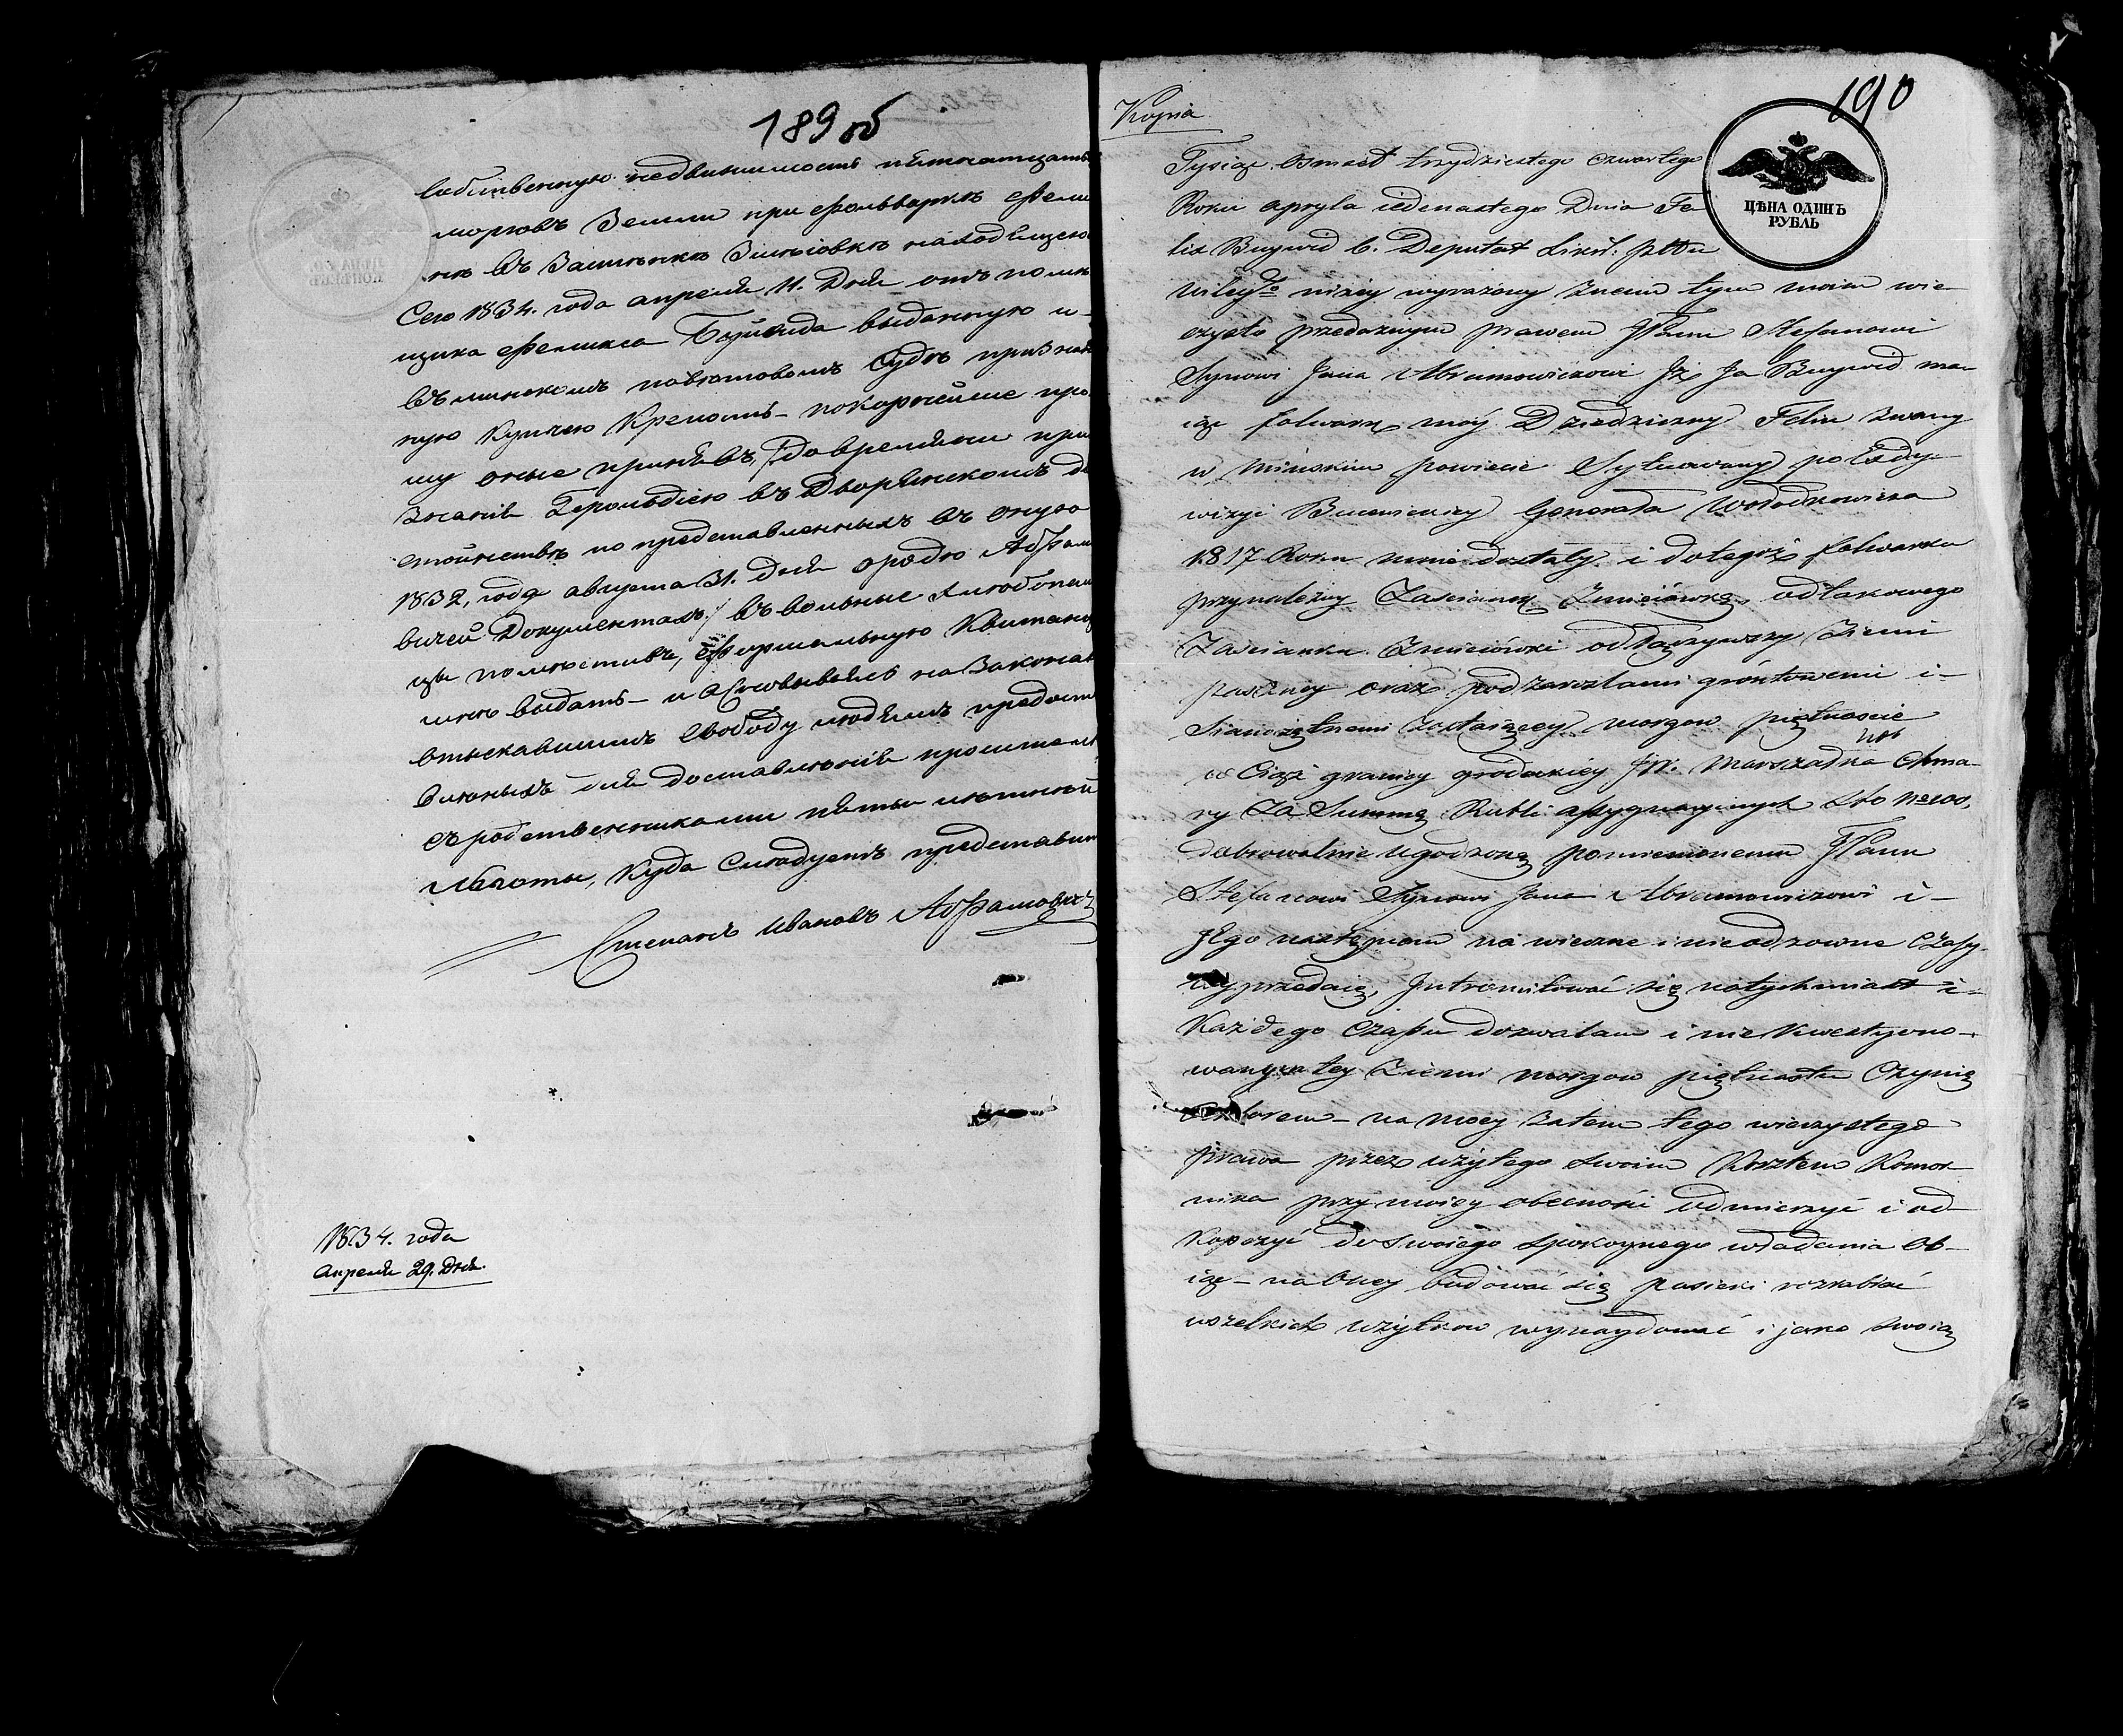 189 об
собственную недвижимость пятнатцать
морговъ Земли при фольварке Фели
не въ Застенке Змеіовке находящею
Сего 1834. года апреля 11. Дня отъ поме
щика Феликса Буйвида выданную и
въ минскомъ поветовомъ Суде признан
ную Купчею Крепость - покорнейше про
шу оные принявъ, до времяни при
знанія Герольдіею въ Дворянскомъ до
стоинстве по представленныхъ въ оную
1832, года августа 31. дня о роде Абрамо
вичей Документахъ / въ вольные хлебопаш
цы поместивъ, формальную Квитанц
мне выдать - и
втыскавшимъ Свободу людямъ предост
вленныхъ для доставленія
съ родственниками пяти летней
Льготы, Куда Следуетъ представит
Степанъ Ивановъ Абрамовичъ
1834. года
Апреля 29. Дня.
190
Kopia
ЦѢНА ОДИНЪ
РУБЛЬ
Tysiąc osmset trzydziestego czwartego
Roku apryla iedenastego Dnia Fe
lix Buywid b. Deputat Likw: Pttu
Wileygo niżey wyrażony znam tym moim wie
czysto przedażnym prawem JPanu Stefanowi
Synowi Jana Abramowiczowi Jż Ja Buywid ma
iąc folwark móy Dziedziczny Felin zwany
w Mińskim powiecie Sytuowany po Exdy
wizyi Generała Wołodkowicza
1817 Roku mnie dostały i do tegoż folwarku
przynależny Zaścianek Zmieiówkę, od takowego
Zaścianku Zmieiówki odłączywszy Ziemi
paszney oraz pod zarostami gróntowemi i -
Sianożętnemi zostaiącey morgow piętnaście
w Ciągu granicy gródeckiey JW. Marszałka Chma-
ry Za Summę Rubli assygnacyinych sto No 100,
dobrowolnie ugodzoną pomienionemu JPanu
Stefanowi Synowi Jana Abramowiczowi i -
Jego następcom na wieczne i nieodzowne czasy
wyprzedaię, Intromitować się natychmiast i -
Każdego czasu dozwalam i nie kwestyono-
wanym tey Ziemi morgow piętnastu Czynię
Aktorem - na mocy zatem tego wieczystego
prawa przez użytego swoim Kosztem Komor
nika przy moiey obecności odmierzyć i od
kopczyć do swoiego spokoynego władania ob-
iąć - na oney budować się pasieki rozrabiać
wszelkich użytkow wynaydować i jako swoią